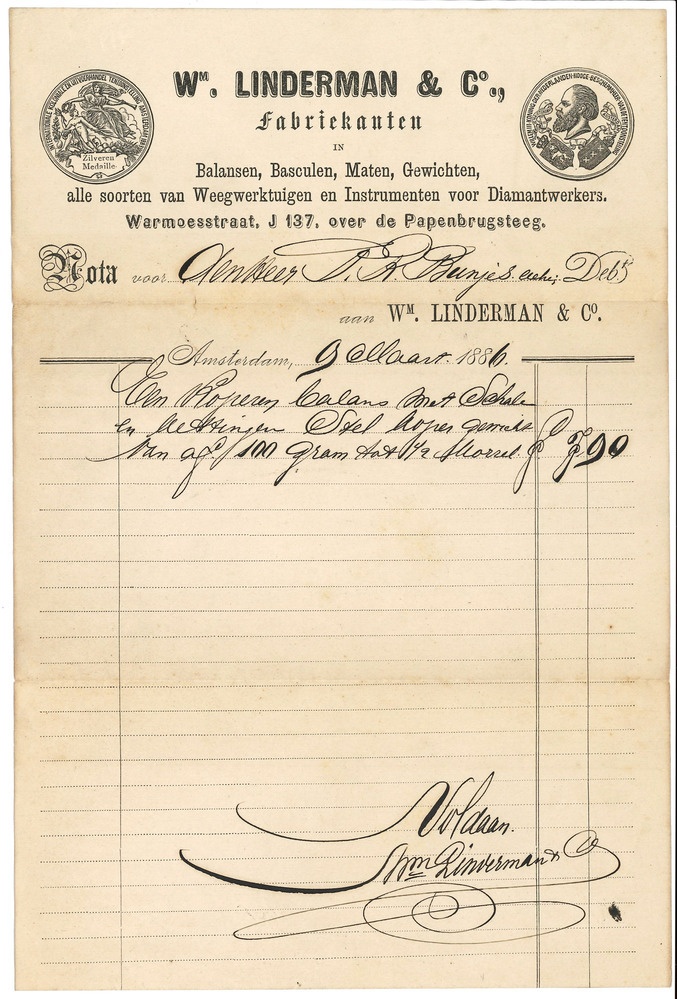 Wᴹ. LINDERMAN & Cº.,
Fabriekanten
IN
Balansen, Basculen, Maten, Gewichten,
alle soorten van Weegwerktuigen en Instrumenten voor Diamantwerkers.
Warmoesstraat, J 137, over de Papenbrugsteeg.
Zilveren
Medaille.
Nota voor den Heer Bunjes Debt
aan Wᴹ. LINDERMAN & Cº.
Amsterdam, 9 Maart 1886.
Een Koperen balans met Schale
en Kettingen Stel koper gewicht
Van af 100 gram tot 1/2 f 7,90
Voldaan.
Wm Linderman & Co